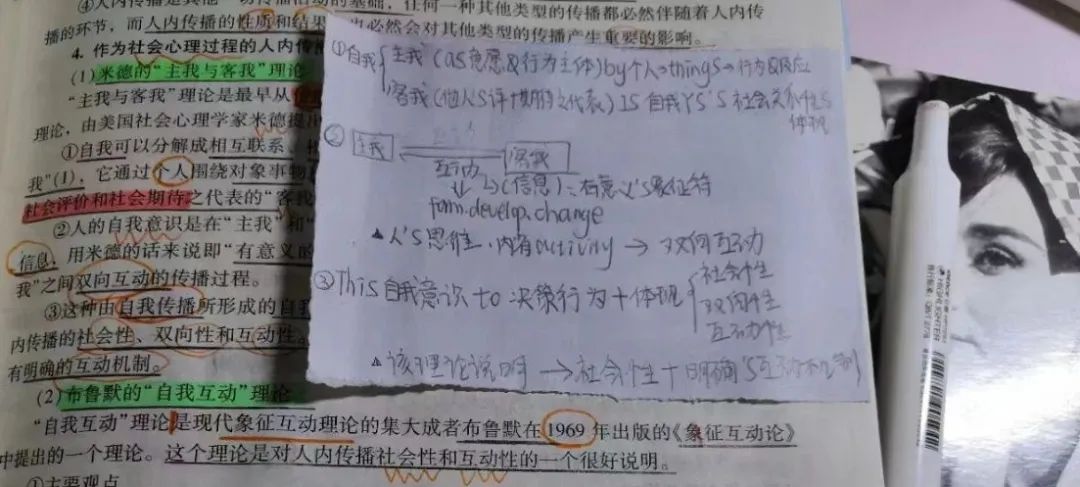 ④人内传播是其他一切传播活动的基础，任何一种其他类型的传播都必然伴随着人内传
播的环节，而人内传播的性质和结果，也必然会对其他类型的传播产生重要的影响。
4. 作为社会心理过程的人内传
(1)米德的“主我与客我”理论
“主我与客我”理论是最早从
理论，由美国社会心理学家米德提出
①自我可以分解成相互联系、
我”(1)，它通过个人围绕对象事物
社会评价和社会期待之代表的“客我
②人的自我意识是在“主我”和“
信息，用米德的话来说即“有意义的
我”之间双向互动的传播过程。
③这种由自我传播所形成的自我
内传播的社会性、双向性和互动性。
有明确的互动机制。
(2)布鲁默的“自我互动”理论
“自我互动”理论是现代象征互动理论的集大成者布鲁默在1969年出版的《象征互动论》
中提出的一个理论。这个理论是对人内传播社会性和互动性的一个很好说明。
①主要观点
①自我
主我(as意愿&行为主体)by个人→things→行为&反应
客我(他人's评+期待之代表)is 自我's社会关系性's
体现
② 主我 客我
互动
↳(信息)=有意义's象征符
form.develop.change
▲人's思维, 内省activity → 双向互动
③This自我意识 to 决策行为+体现
社会性
双向性
互动性
▲该理论说明 → 社会性+明确's互动机制